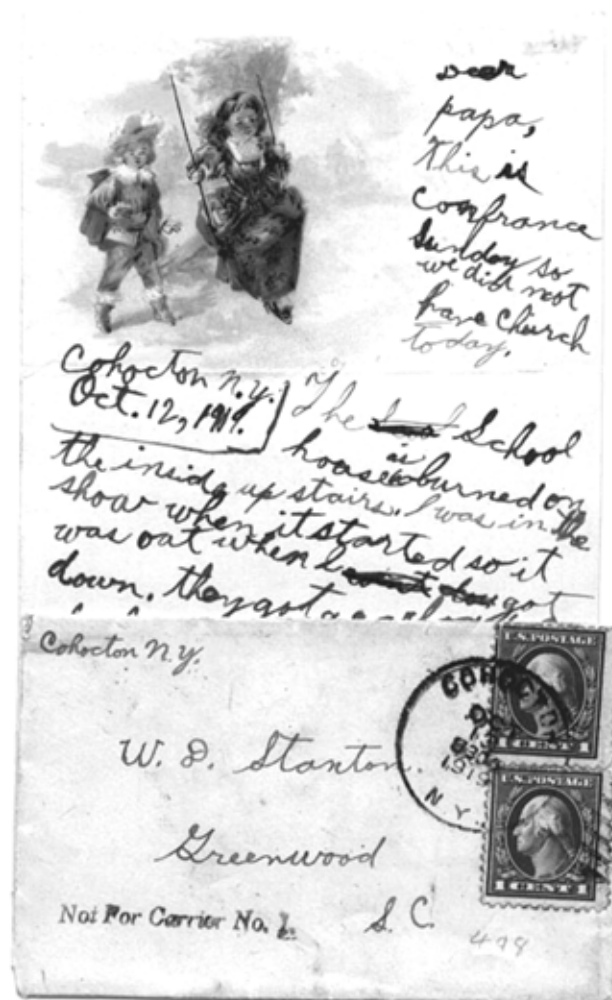 Deer
papa,
This is
confrance
Sunday so
we did not
have Church
today.
Cohocton N.Y.
Oct. 12, 1919.
The School
house is burned on
the inside up stairs. I was in the
show when it started so it
was out when I got
down. they got
Cohocton N.Y.
W. D. Stanton.
Greenwood
S. C.
Not For Carrier No.
478
COHOCTON
OCT
13
1919
N.Y.
U.S. POSTAGE
CENTS
U.S. POSTAGE
CENTS